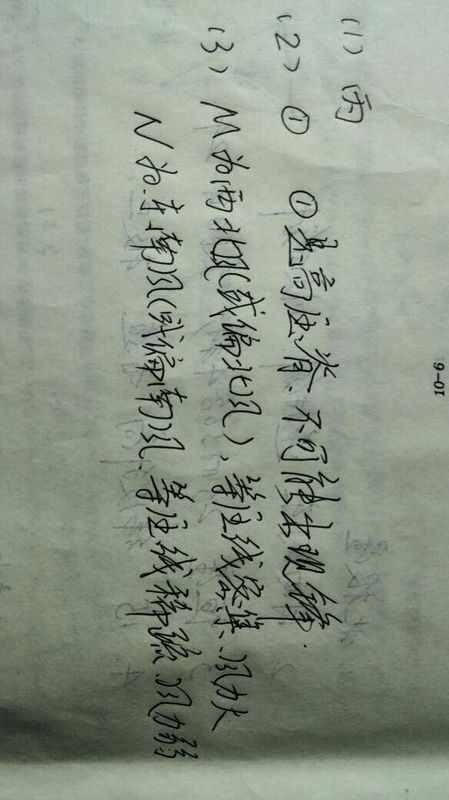 (1) 丙
(2) ① ①是高压脊、不可能出现锋.
(3) M为西北风(或偏北风)、等压线密集、风力大
N为东南风(或偏南风、等压线稀疏、风力弱
10-6